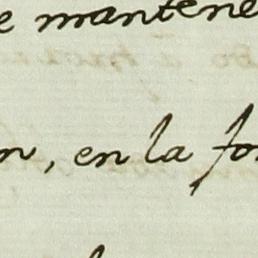 e mantene
n, en la fo